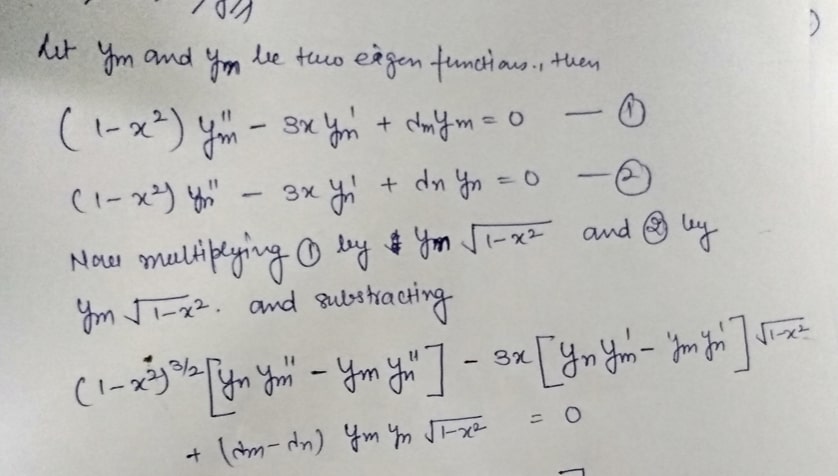 Let ym and yn be two eigen functions., then
(1-x²) ym'' - 3x ym' + dm ym = 0 — ①
(1-x²) yn'' - 3x yn' + dn yn = 0 — ②
Now multiplying ① by yn √1-x² and ② by
ym √1-x². and substracting
(1-x²)^3/2 [yn ym'' - ym yn''] - 3x [yn ym' - ym yn'] √1-x²
+ (dm - dn) ym yn √1-x² = 0